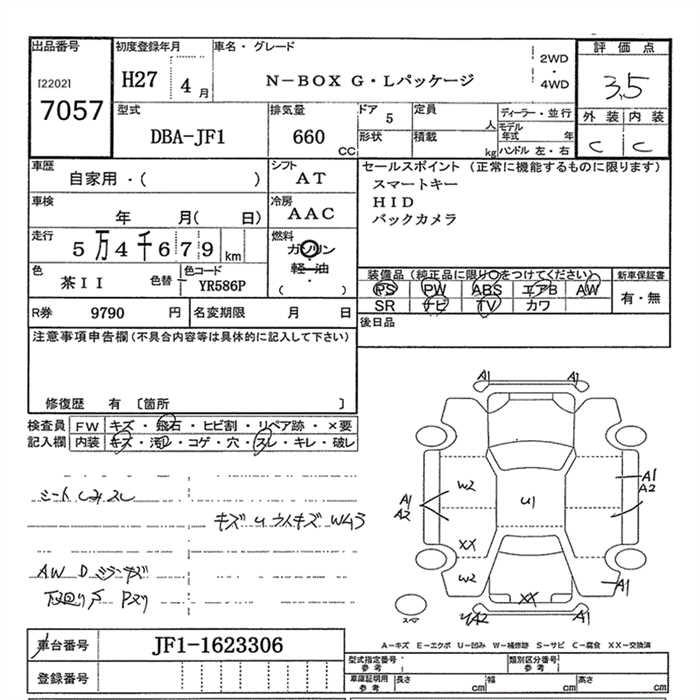 出品番号
[2202]
7057
初度登録年月
H27 4月
車名・グレード
N-BOX G・Lパッケージ
2WD
・
4WD
評価点
3.5
外装 内装
C C
型式
DBA-JF1
排気量
660
CC
ドア 5
形状
定員 人
積載 kg
ディーラー・並行
モデル年式 年
ハンドル 左・右
車歴
自家用・( )
シフト
AT
車検
年 月( 日)
冷房
AAC
走行
5万4千679km
燃料
ガソリン
軽油
・
( )
色
茶II
色替
色コード
YR586P
セールスポイント(正常に機能するものに限ります)
スマートキー
HID
バックカメラ
装備品(純正品に限り○をつけてください)
PS PW ABS エアB AW
SR ナビ TV カワ
新車保証書
有・無
後日品
R券 9790 円
名変期限 月 日
注意事項申告欄(不具合内容等は具体的に記入して下さい)
修復歴 有 [箇所 ]
検査員記入欄
FW キズ・飛石・ヒビ割・リペア跡・×要
内装 キズ・汚レ・コゲ・穴・スレ・キレ・破レ
シートシミスレ
キズ U ウスキズ Wムラ
AW D ミラーキズ
下廻りサ Pスリ
A1 A1
W2
U1
A1
A2
A1
A2
XX
W2
A1
XX
A2
スペア
A-キズ E-エクボ U-凹み W-補修跡 S-サビ C-腐食 XX-交換済
車台番号
JF1-1623306
登録番号
型式指定番号
参考
類別区分番号
参考
車庫証明用
参考
長さ cm 幅 cm 高さ cm